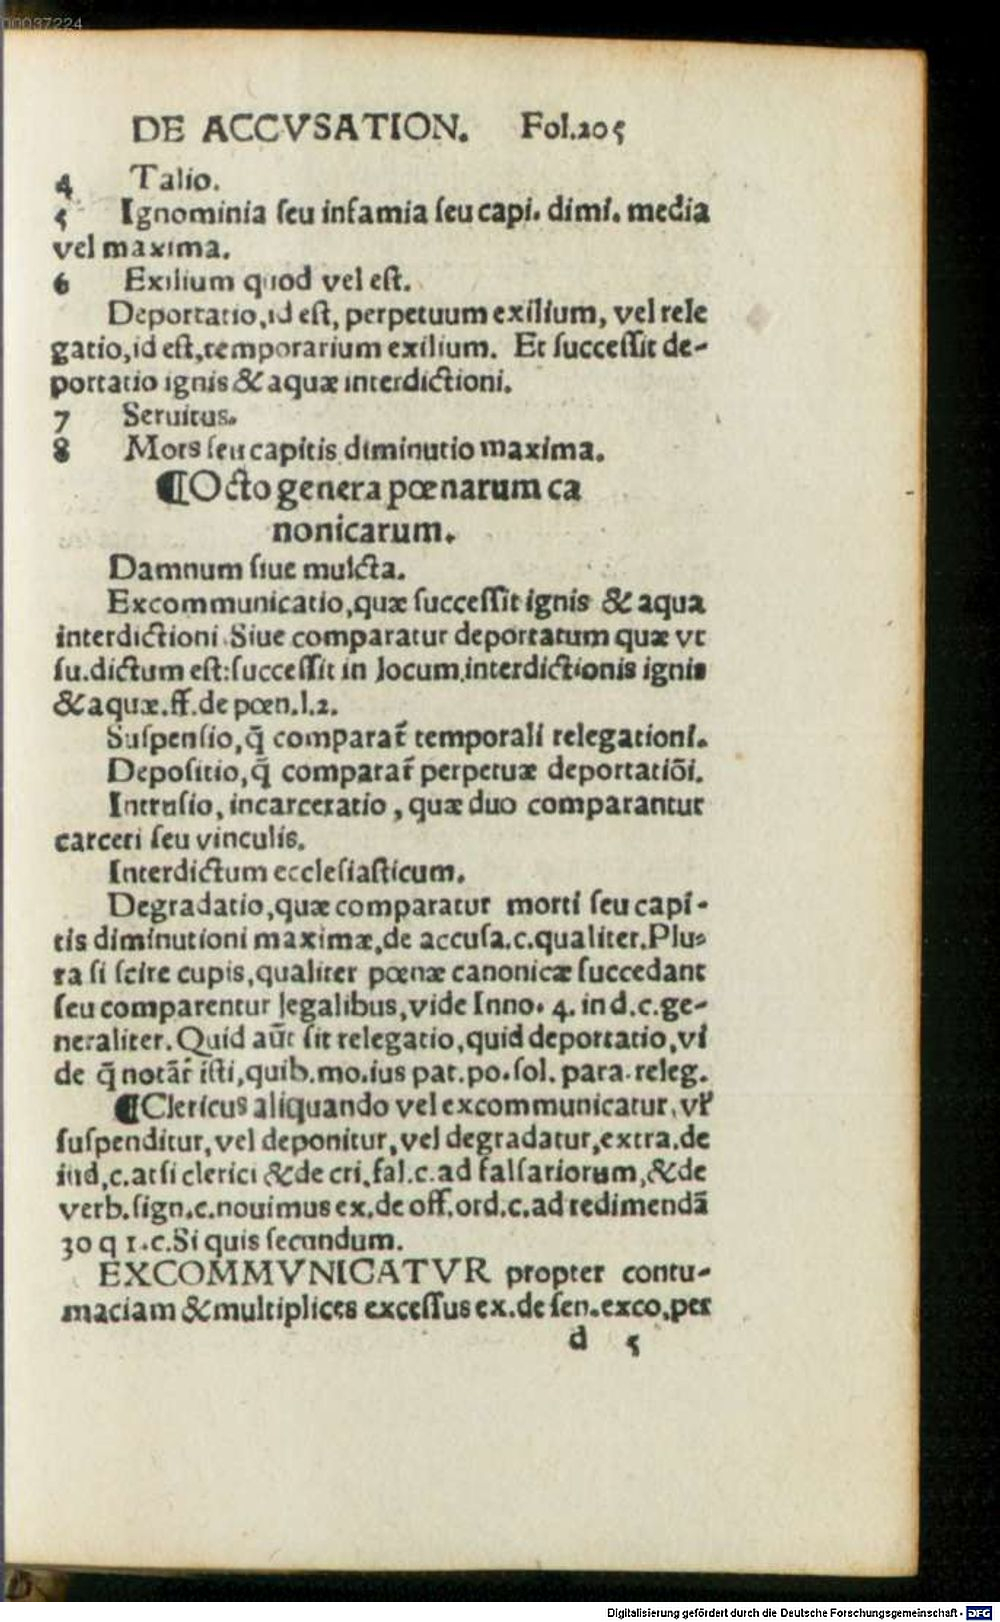 00037224
DE ACCVSATION. Fol.205
4 Talio.
5 Ignominia ſeu infamia ſeu capi. dimi. media
vel maxima.
6 Exilium quod vel eſt.
Deportatio, id eſt, perpetuum exilium, vel rele
gatio, id eſt, temporarium exilium. Et ſucceſſit de-
portatio ignis & aquæ interdictioni.
7 Seruitus.
8 Mors ſeu capitis diminutio maxima.
¶Octo genera pœnarum ca
nonicarum.
Damnum ſiue mulcta.
Excommunicatio, quæ ſucceſſit ignis & aqua
interdictioni. Siue comparatur deportatum quæ vt
ſu. dictum eſt: ſucceſſit in locum, interdictionis ignis
& aquæ. ff. de pœn. l. 2.
Suſpenſio, q̃ comparat̃ temporali relegationi.
Depoſitio, q̃ comparat̃ perpetuæ deportatiõi.
Intruſio, incarceratio, quæ duo comparantur
carceri ſeu vinculis.
Interdictum eccleſiaſticum.
Degradatio, quæ comparatur morti ſeu capi-
tis diminutioni maximæ, de accuſa. c. qualiter. Plu-
ra ſi ſcire cupis, qualiter pœnæ canonicæ ſuccedant
ſeu comparentur legalibus, vide Inno. 4. in d. c. ge-
neraliter. Quid aũt ſit relegatio, quid deportatio, vi
de q̃ notãr̃ iſti, quib. mo. ius pat. po. ſol. para. releg.
¶Clericus aliquando vel excommunicatur, vl̃
ſuſpenditur, vel deponitur, vel degradatur, extra. de
iud, c. at ſi clerici & de cri, fal. c. ad falſariorum, & de
verb. ſign. c. nouimus ex. de off. ord. c. ad redimendã
30 q 1. c. Si quis ſecundum.
EXCOMMVNICATVR propter contu-
maciam & multiplices exceſſus ex. de ſen. exco, per
d 5
Digitalisierung gefördert durch die Deutsche Forschungsgemeinschaft - DFG